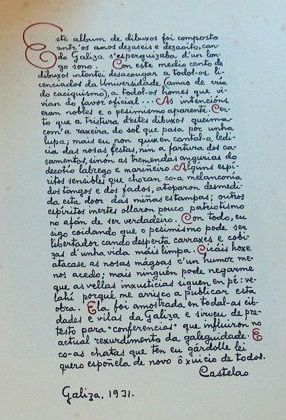 Este album de dibuxos foi composto
antr'os anos dezaseis e dezaoito, can-
do Galiza s'esperguizaba d'un lon-
go sono. Con este medio cento de
dibuxos intentei desacougar a todol-os li-
cenciados da Universidade, (amas de cría
do caciquismo), a todol-os homes que vi-
vían do favor oficial... As intencións
eran nobles e o pesimismo aparente. Cer-
to que a tristura d'estes dibuxos queima
com'a raxeira do sol que pasa por unha
lupa; mais eu non quixen cantal-a ledi-
cia das nosas festas, nin a fartura dos ca-
samentos, sinón as tremendas anguras do
decotío labrego e mariñeiro. Algúns espí-
ritos sensibles que choran co-a melanconía
dos tangos e dos fados, atoparon desmedi-
da esta door das miñas estampas; outros
espíritos inertes ollaron pouco patriotismo
no afán de ser verdadeiro. Con todo, eu
sigo coidando que o pesimismo pode ser
libertador cando desperta carraxes e cobi-
zas d'unha vida mais limpa. Cicáis hoxe
atacase as nosas mágoas c'un humor me-
nos acedo; mais ninguén pode negarme
que as vellas inxusticias siguen en pé: ve-
lahí porque me arrisco a publicare esta
obra. Ela foi amostrada en todal-as cib-
dades e vilas da Galiza e sirveu de pre-
testo para "conferencias" que influiron no
actual rexurdimento da galeguidade. E
co-as chatas que ten eu gárdolle lei
quero espoñela de novo ô xuicio de todos.
Castelao
Galiza, 1931.